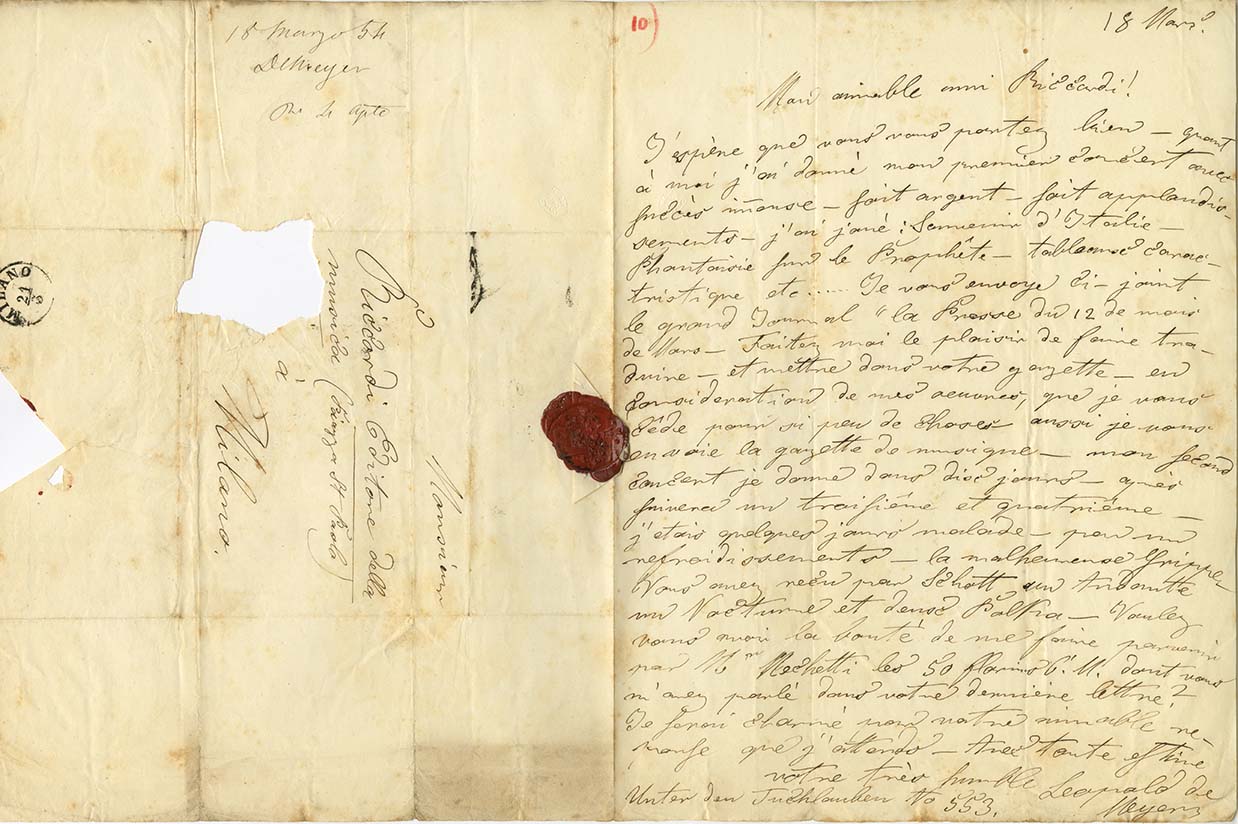 18 Marzo 54
DeMeyer
Ri 4 Apte
MILANO
21
3
Monsieur
Riccordi Editore della
musica (Piazza St Paolo)
à
Milano.
10)
18 Mars.
Mon aimable ami Riccordi!
J'espène que vous vous portez bien – quant
à moi j'ai donné mon premier concert avec
succès imense – soit argent – soit applaudis-
sements – j'ai joué: Souvenir d'Italie –
Phantaisie sur le Prophête – tableause carac-
tristique etc..... Je vous envoye ci-joint
le grand Journal "la Presse du 12 de mois
de Mars – Faitez moi le plaisir de faire tra-
duire – et mettre dans votre gazette – en
consideration de mes oeuvres, que je vous
cède pour si peu de choses aussi je vous
envoie la gazette de musique – mon second
concert je donne dans disc jours – apres
suivera un traisiéme et quatriéme –
j'etais quelques jours malade – par un
refroidissements – la malheureuse Grippe,
Vous avez reçu par Schott un Andante
un Nocturne et deusc Polka – Voulez
vous avoir la bonté de me faire parvenir
par Mr Mechetti les 50 florins C. M. dont vous
m'avez parlé dans votre dernière lettre?
Je serai charmé pour votre aimable ré-
ponse que j'attends – Avec toute estime
votre très humble Leopold de
Meyer
Unter den Tuchlauben No 553.